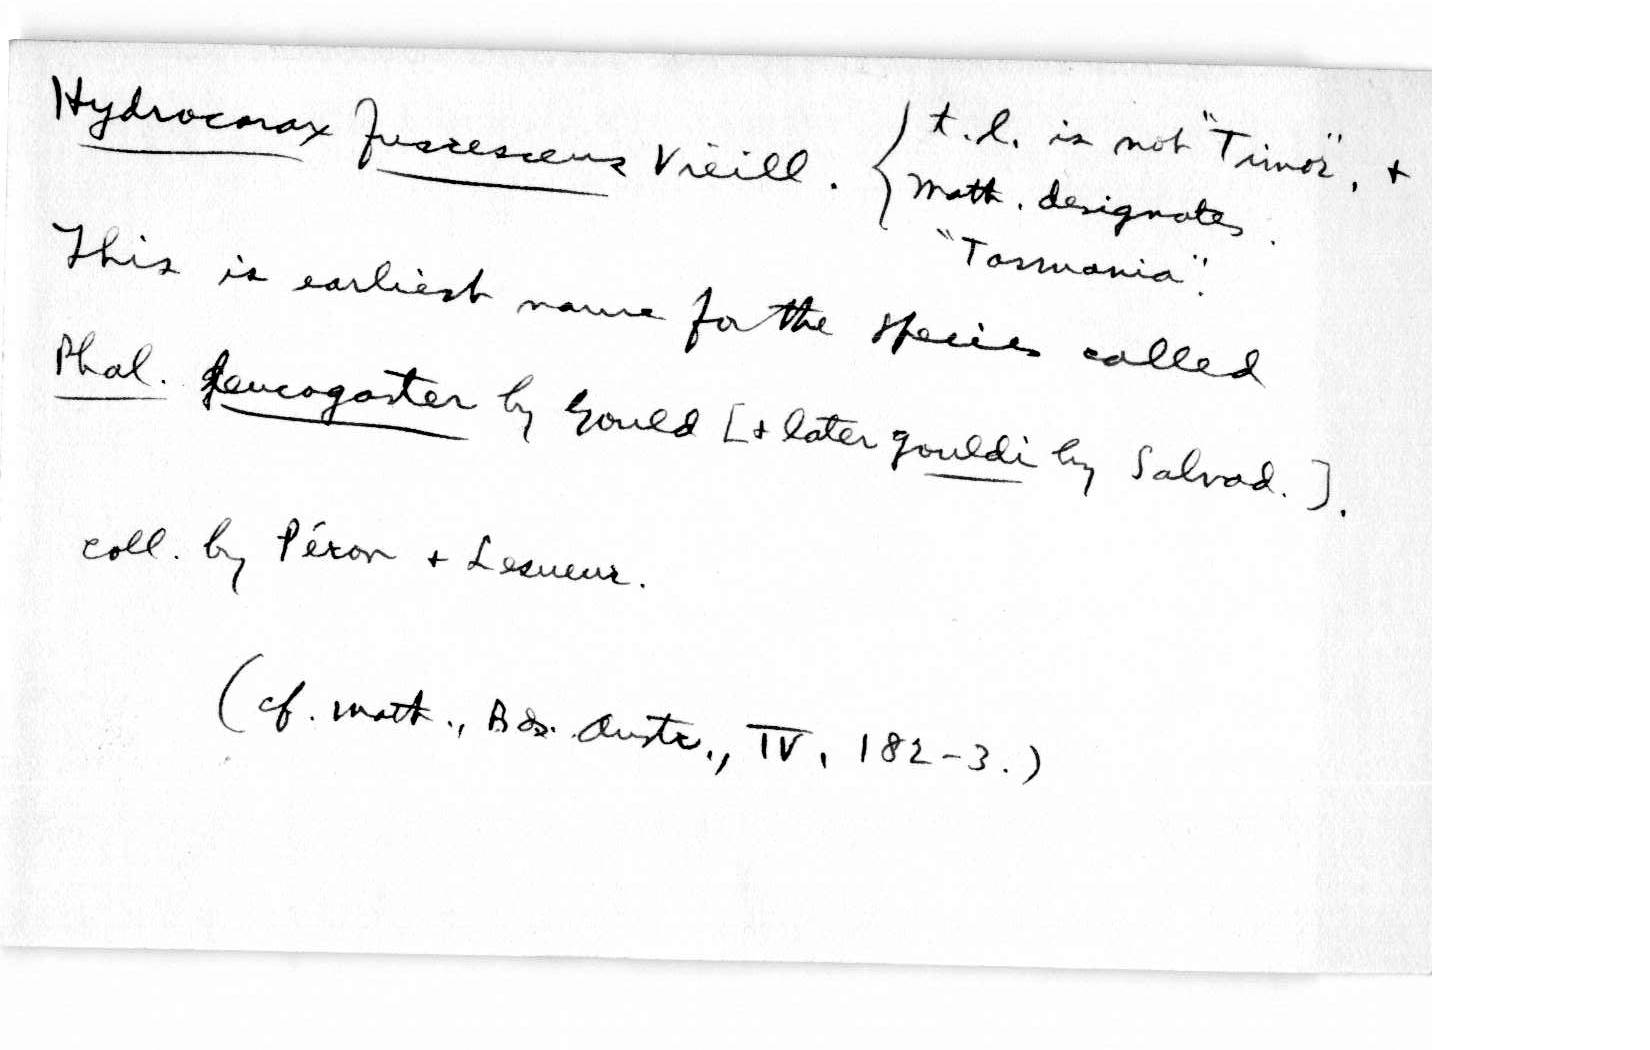 Hydrocorax fuscescens Vieill.
{ t.l. is not "Timor", +
Math. designates
"Tasmania".
This is earliest name for the species called
Phal. leucogaster by Gould [+ later gouldi by Salvad.].
coll. by Péron + Lesueur.
(cf. Math., Bds. Austr., IV, 182-3.)